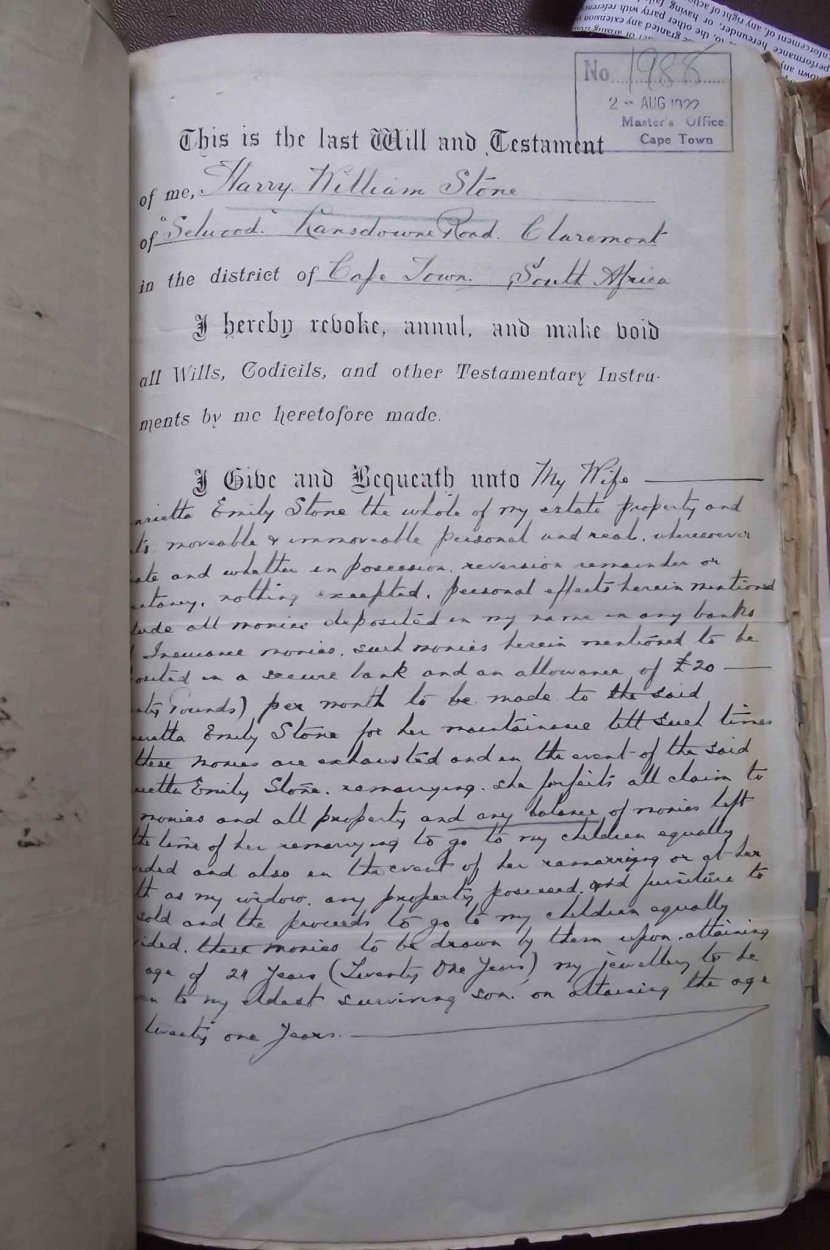 No. 1988
2 - AUG 1922
Master's Office
Cape Town
This is the last Will and Testament
of me, Harry William Stone
of "Selwood." Lansdowne Road. Claremont
in the district of Cape Town. South Africa
I hereby revoke, annul, and make void
all Wills, Codicils, and other Testamentary Instru-
ments by me heretofore made.
I Give and Bequeath unto My Wife
nrietta Emily Stone the whole of my estate property and
ts, moveable & immoveable personal and real, wheresoever
ate and whether in posession, reversion remainder or
ectancy, nothing excepted, personal effects herein mentioned
lude all monies deposited in my name in any banks
Insurance monies, such monies herein mentioned to be
osited in a secure bank and an allowance of £20
nty Pounds) per month to be made to the said
rietta Emily Stone for her maintainance till such times
these monies are exhausted and in the event of the said
rietta Emily Stone. remarrying. she forfeits all claim to
monies and all property and any balance of monies left
the time of her remarrying to go to my children equally
ided and also in the event of her remarrying or at her
th as my widow, any property posessed, and furniture to
sold and the proceeds to go to my children equally
ided, these monies to be drawn by them upon attaining
age of 21 Years (Twenty One Years) my jewellery to be
en to my eldest surviving son. on attaining the age
twenty one Years.